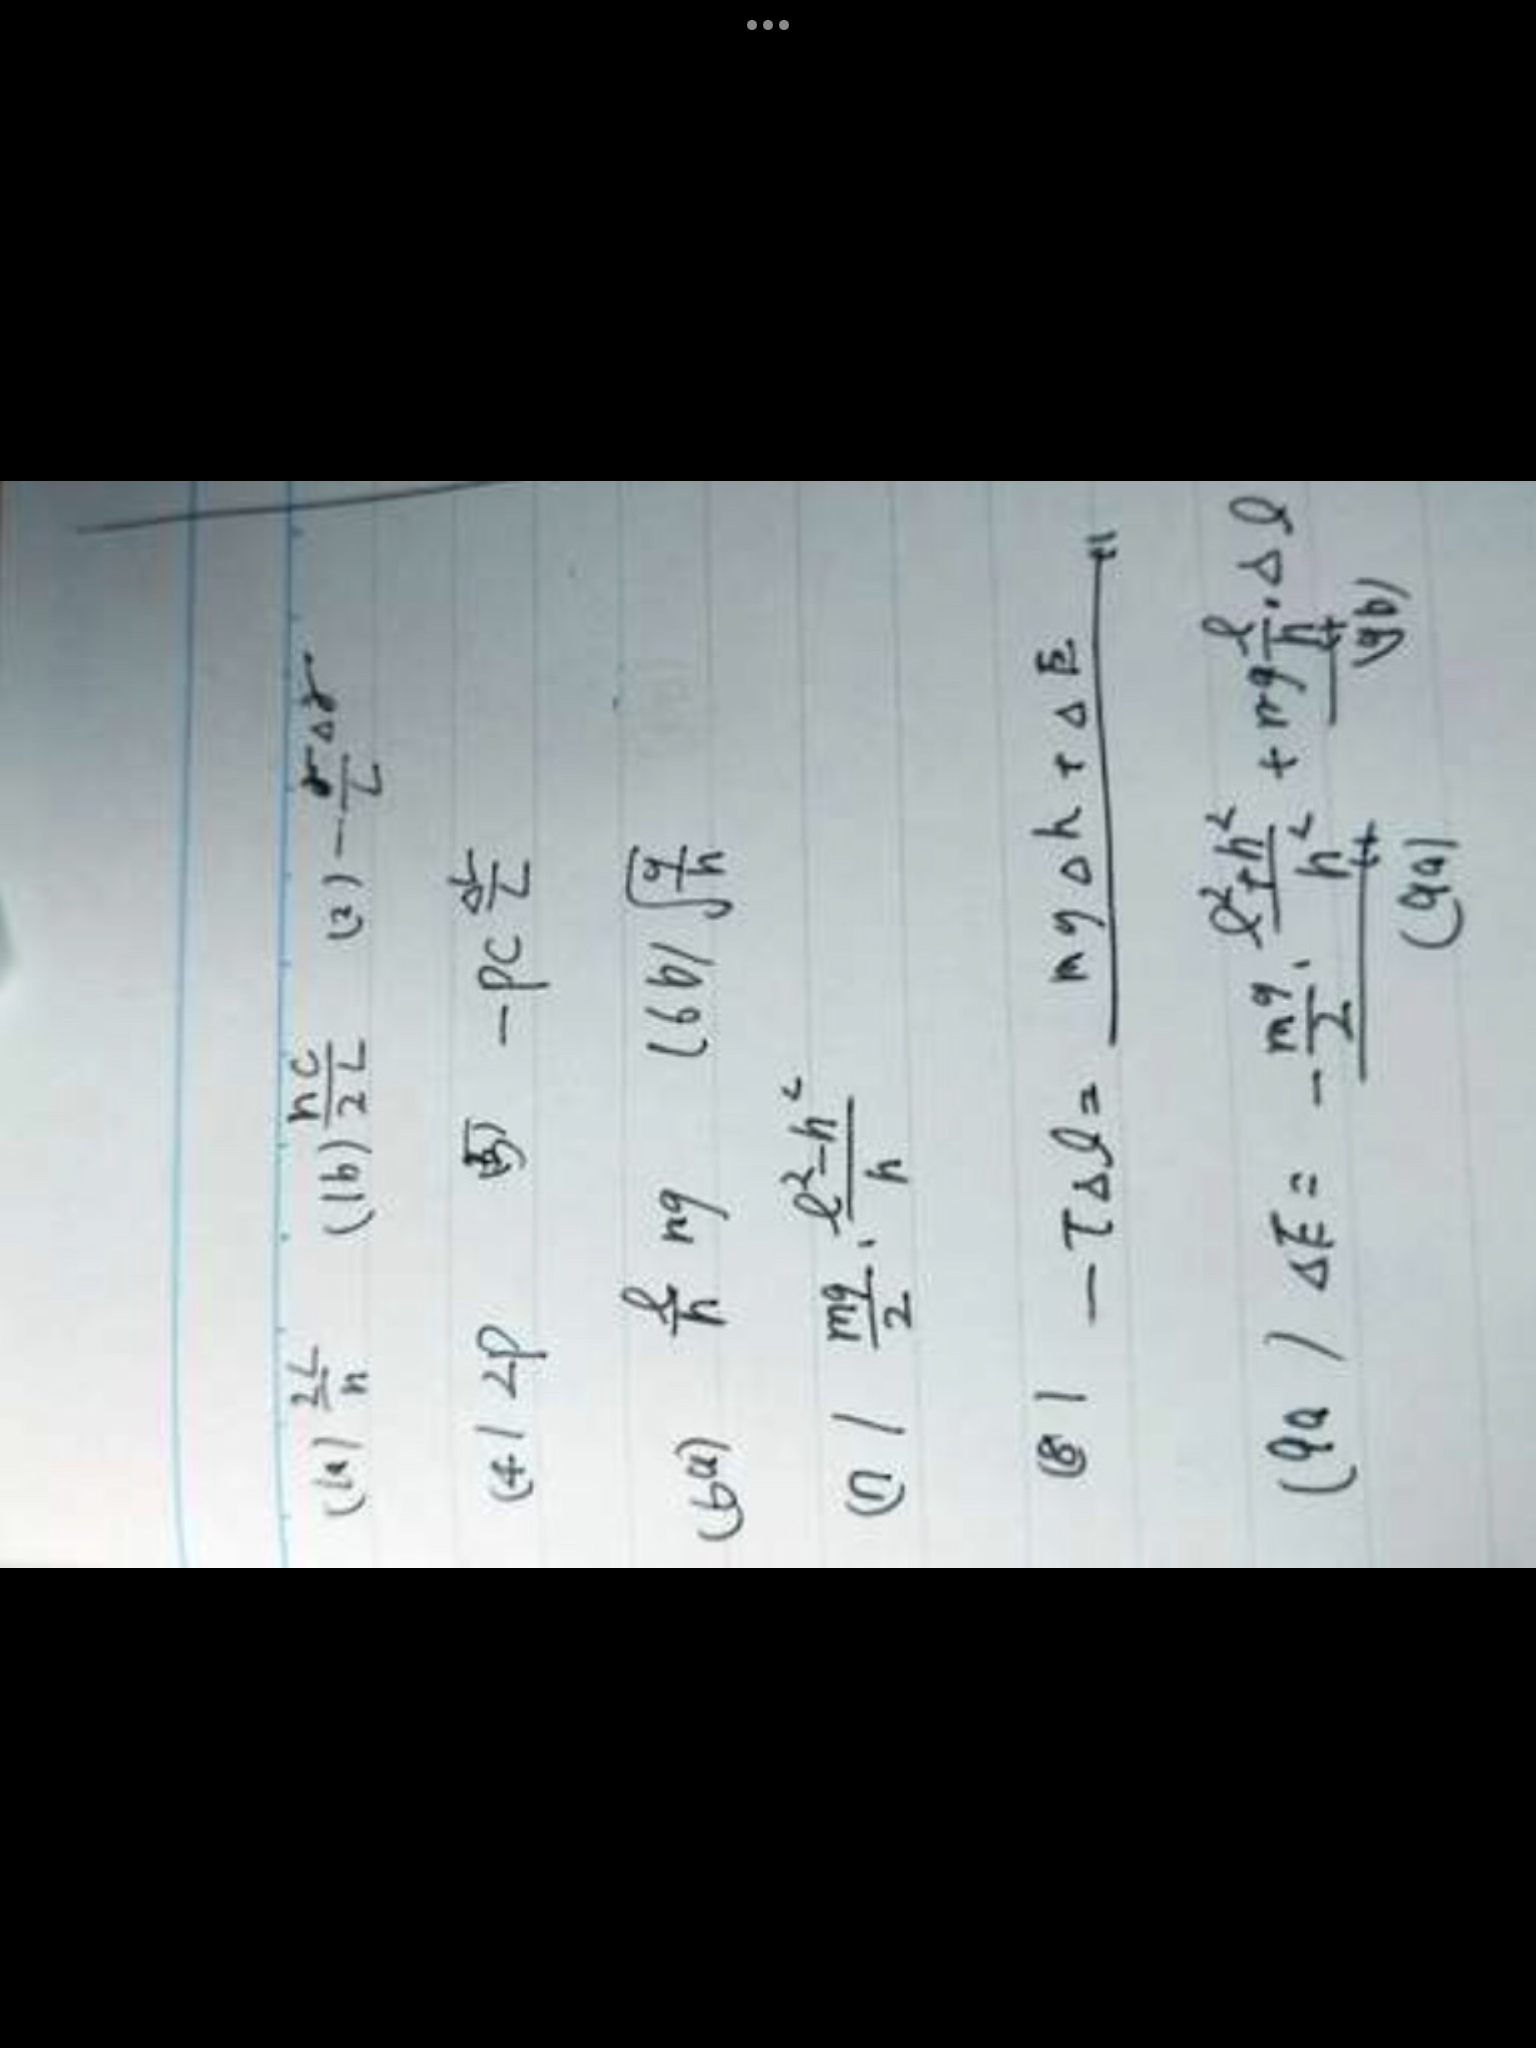 (1a) 2L/n (1b) nc/2L (2) -
(4) 2P -PC ΔL/L
(6a) l/h mg (6b) √(g/h)
(7) mg/2 · (l²-h²)/h
(8) -TΔl = mgΔh + ΔE
(9a) ΔE = - mg/2 · (l²+h²)/h² + mg l/h · Δl
(9a) (9b)